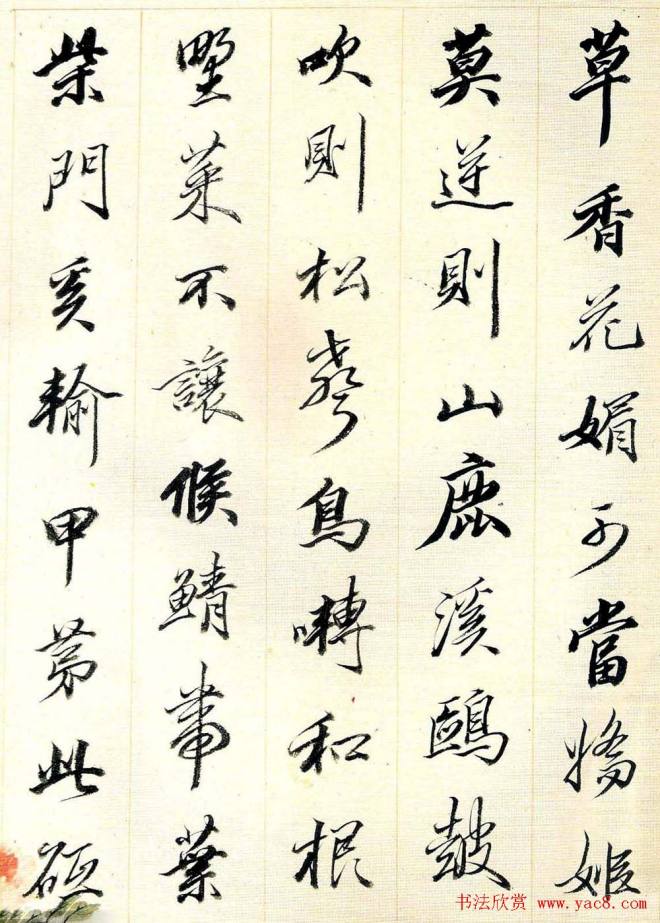 草香花媚可當嬌姬
莫逆則山鹿溪鷗鼓
吹則松聲鳥囀和根
野菜不讓候鯖帶葉
柴門奚輸甲第此碩
书法欣赏 www.yac8.com